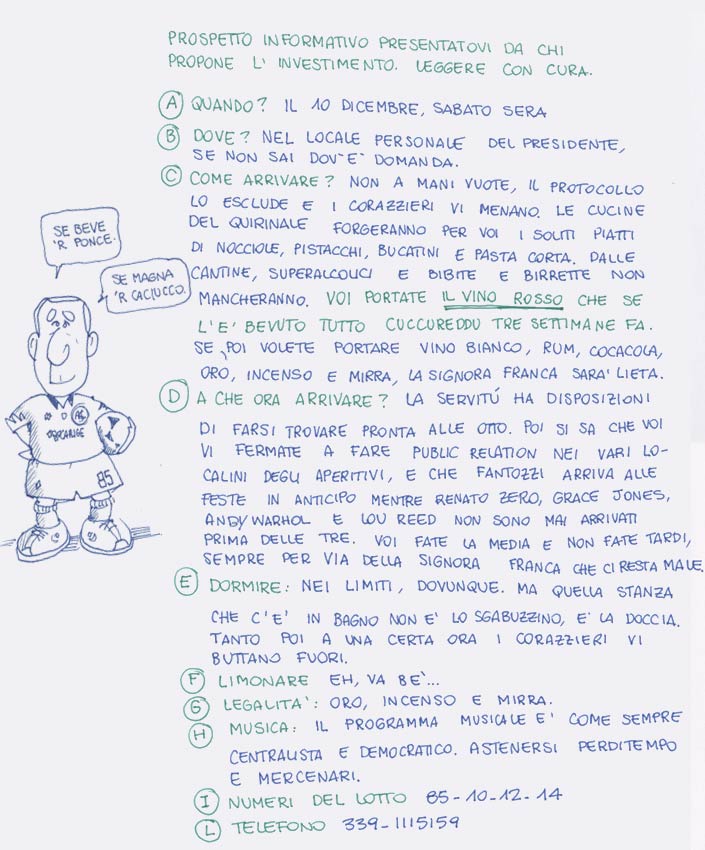 PROSPETTO INFORMATIVO PRESENTATOVI DA CHI
PROPONE L' INVESTIMENTO. LEGGERE CON CURA.
A QUANDO? IL 10 DICEMBRE, SABATO SERA
B DOVE? NEL LOCALE PERSONALE DEL PRESIDENTE,
SE NON SAI DOV'È DOMANDA.
C COME ARRIVARE? NON A MANI VUOTE, IL PROTOCOLLO
LO ESCLUDE E I CORAZZIERI VI MENANO. LE CUCINE
DEL QUIRINALE FORGERANNO PER VOI I SOLITI PIATTI
DI NOCCIOLE, PISTACCHI, BUCATINI E PASTA CORTA. DALLE
CANTINE, SUPERALCOLICI E BIBITE E BIRRETTE NON
MANCHERANNO. VOI PORTATE IL VINO ROSSO CHE SE
L'E' BEVUTO TUTTO CUCCUREDDU TRE SETTIMANE FA.
SE POI VOLETE PORTARE VINO BIANCO, RUM, COCACOLA,
ORO, INCENSO E MIRRA, LA SIGNORA FRANCA SARA' LIETA.
D A CHE ORA ARRIVARE? LA SERVITÚ HA DISPOSIZIONI
DI FARSI TROVARE PRONTA ALLE OTTO. POI SI SA CHE VOI
VI FERMATE A FARE PUBLIC RELATION NEI VARI LO-
CALINI DEGLI APERITIVI, E CHE FANTOZZI ARRIVA ALLE
FESTE IN ANTICIPO MENTRE RENATO ZERO, GRACE JONES,
ANDY WARHOL E LOU REED NON SONO MAI ARRIVATI
PRIMA DELLE TRE. VOI FATE LA MEDIA E NON FATE TARDI,
SEMPRE PER VIA DELLA SIGNORA FRANCA CHE CI RESTA MALE.
E DORMIRE: NEI LIMITI, DOVUNQUE. MA QUELLA STANZA
CHE C'E' IN BAGNO NON E' LO SGABUZZINO, E' LA DOCCIA.
TANTO POI A UNA CERTA ORA I CORAZZIERI VI
BUTTANO FUORI.
F LIMONARE EH, VA BE'...
G LEGALITA': ORO, INCENSO E MIRRA.
H MUSICA: IL PROGRAMMA MUSICALE E' COME SEMPRE
CENTRALISTA E DEMOCRATICO. ASTENERSI PERDITEMPO
E MERCENARI.
I NUMERI DEL LOTTO 85-10-12-14
L TELEFONO 339-1115159
SE BEVE
'R PONCE.
SE MAGNA
'R CACIUCCO.
85